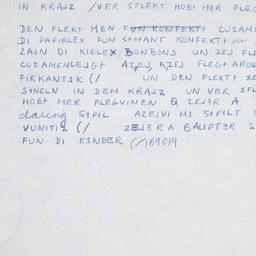 IN KRAJZ /VER SFLEKT HOBT MER FLEG
DEN FLEKT MEN FUN KONFEKTI CUZAM
DI PAPIRLEX FUN STMANT KONFEKTI
ZAJN DI KIELEX BONBONS UN ZEJ FLE
CUZAMENLEJGT AZEJ, AZEJ FLEGT AROU
FIRKANTIK (/ UN DEN FLEKT ZE
STNELN IN DEM KRAJZ UN VER SFL
HOBT MER FLEGVINEN & ZEJ3R A
daring STPIL AZEJVI MI STPILT
VUNITIZ (/ ZEJ3R A BALIDT3R S
FUN DI KINDER (/169019